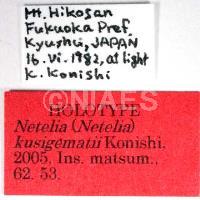 Mt. Hikosan
Fukuoka Pref.
Kyushu, JAPAN
16. vi. 1982, at light
K. Konishi
HOLOTYPE
Netelia (Netelia)
kusigematii Konishi,
2005, Ins. matsum.,
62. 53.
© NIAES